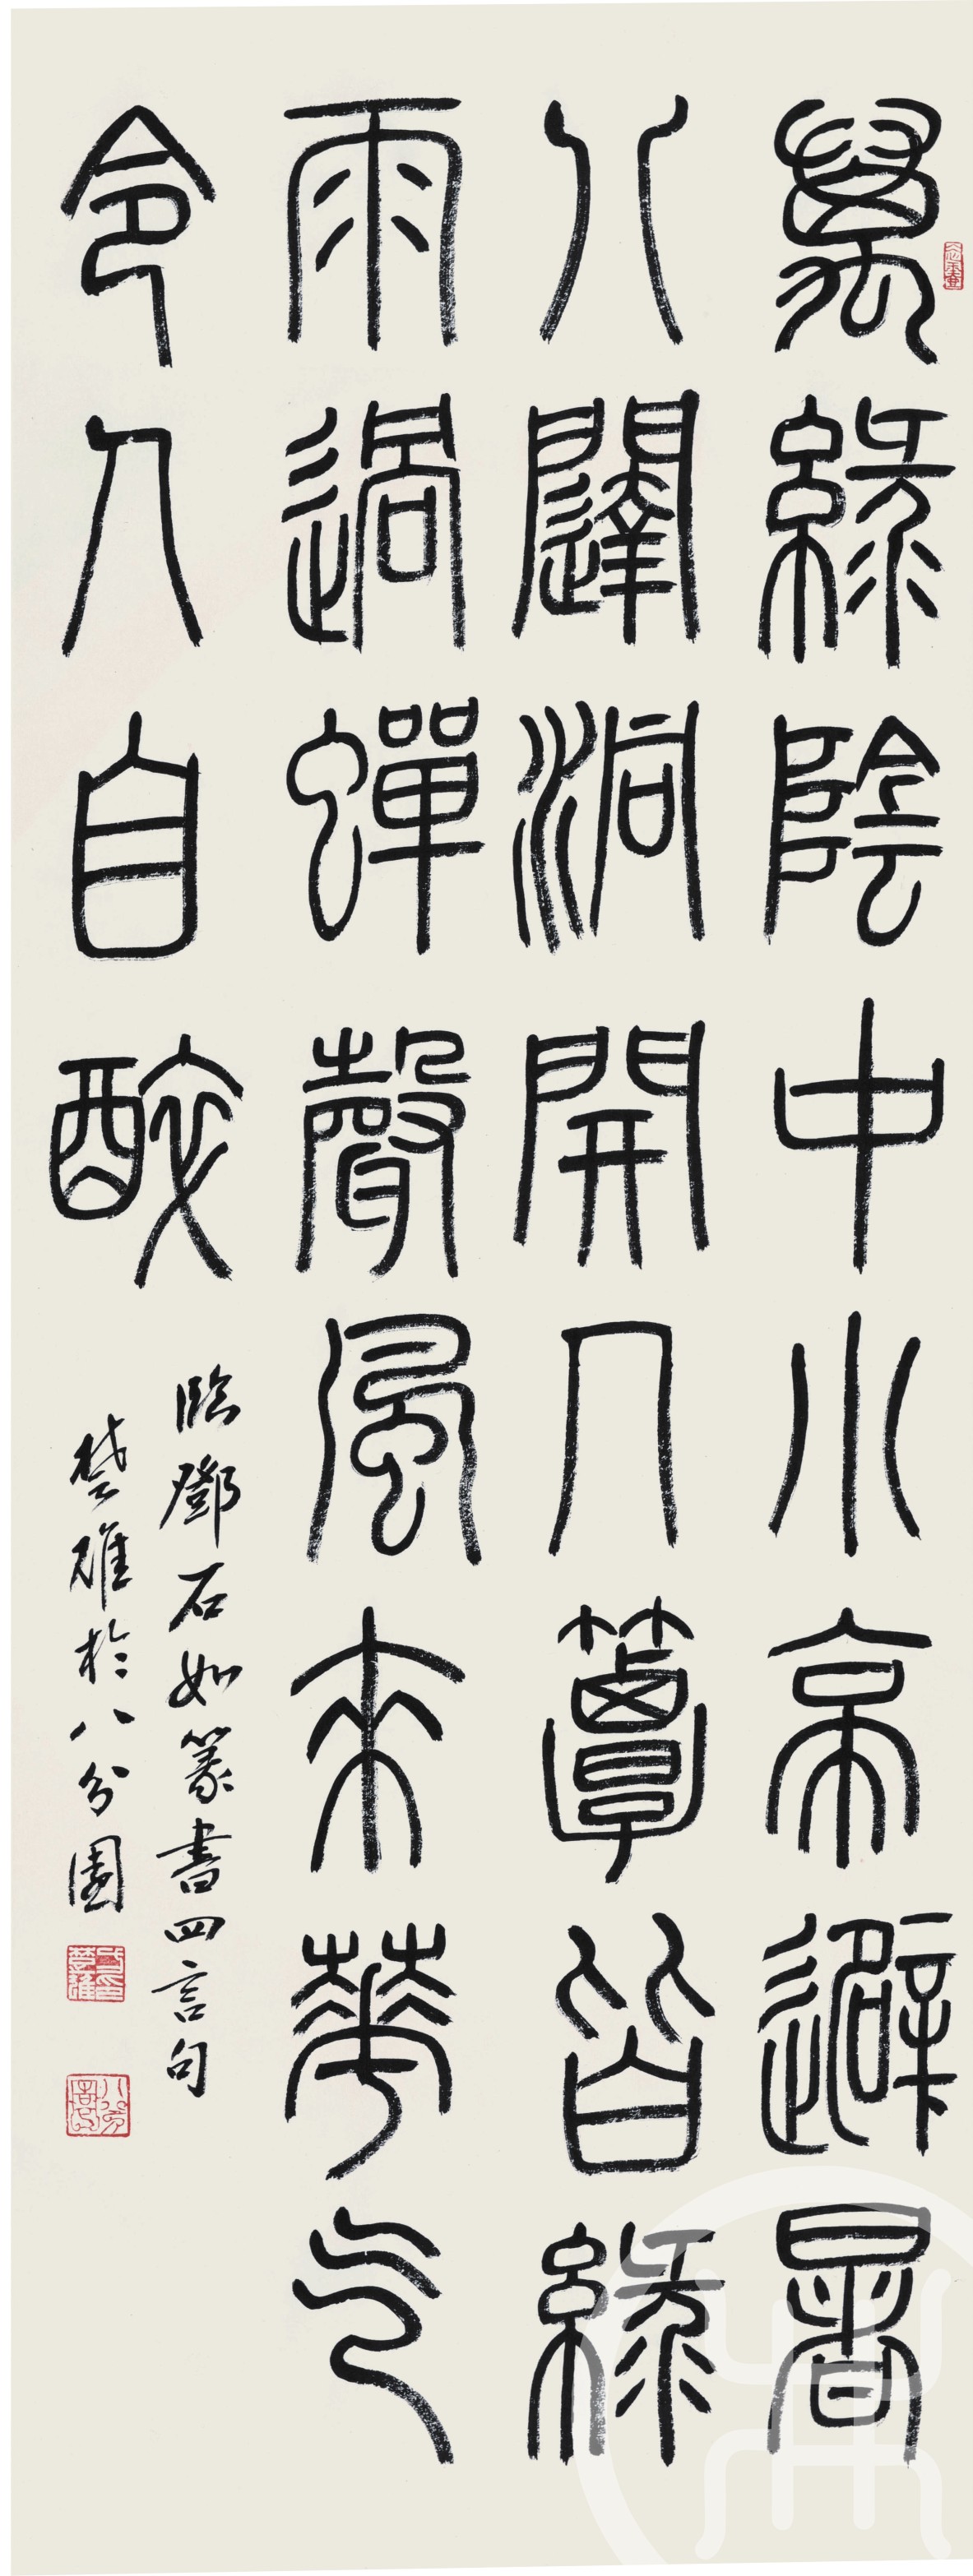 萬綠陰中小亭避暑
八闥洞開几簟皆綠
雨過蟬聲風來華气
令人自醉
臨鄧石如篆書四言句
楚雄於八分園